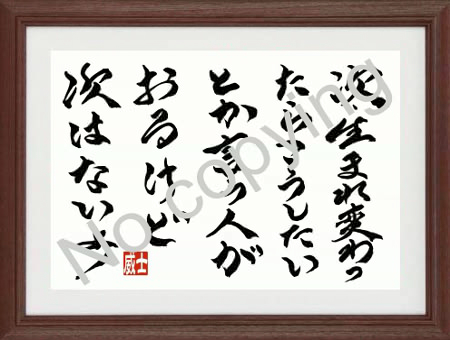 次生まれ変わっ
たらこうしたい
とか言う人が
おるけど
次はないよ
威士
No copying